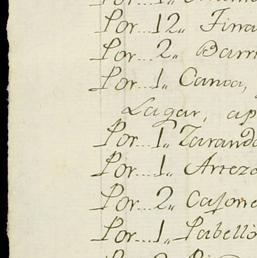 Por... 12,, Tina
Por... 2,, Barri
Por... 1,, Canoa,
Lagar, ap
Por... 1,, Zaranda
Por... 1,, Arteza
Por... 2,, Cajone
Por... 1,, Pabelló